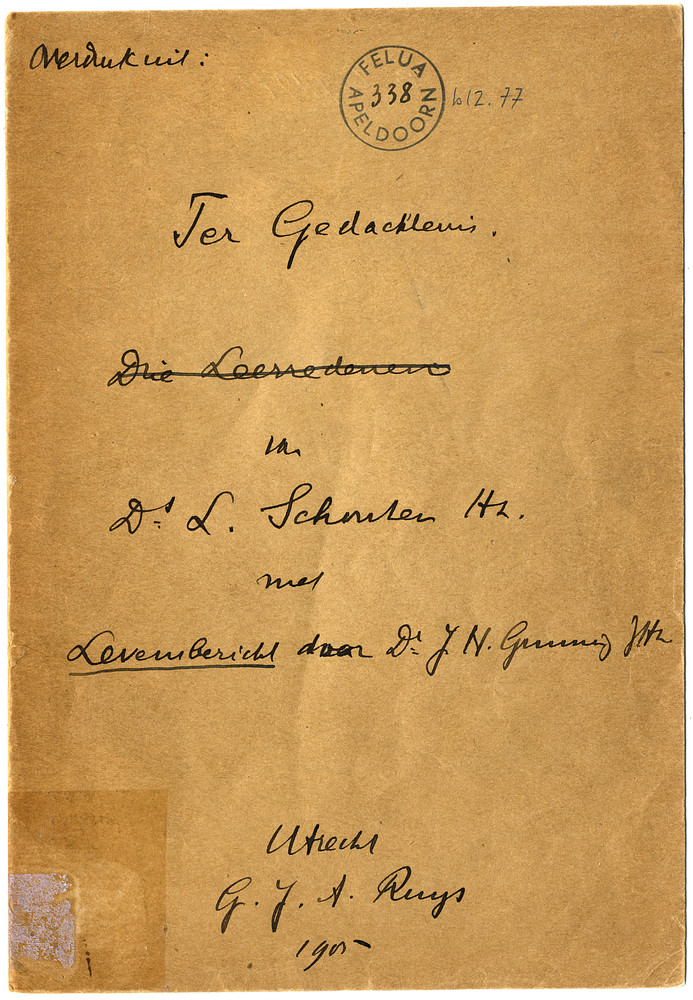 Overdruk uit:
FELUA
338
APELDOORN
612.77
Ter Gedachtenis.
Drie Leerredenen
van
Ds L. Schouten Hz.
met
Levensbericht door Dr J. H. Gunning JHz
Utrecht
G. J. A. Ruys
1905